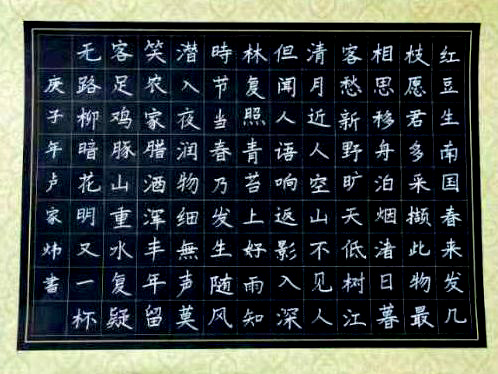 红豆生南国春来发几
枝愿君多采撷此物最
相思移舟泊烟渚日暮
客愁新野旷天低树江
清月近人空山不见人
但闻人语响返影入深
林复照青苔上好雨知
時节当春乃发生随风
潜入夜润物细無声莫
笑农家腊酒浑丰年留
客足鸡豚山重水复疑
无路柳暗花明又一杯
庚子年卢家炜書